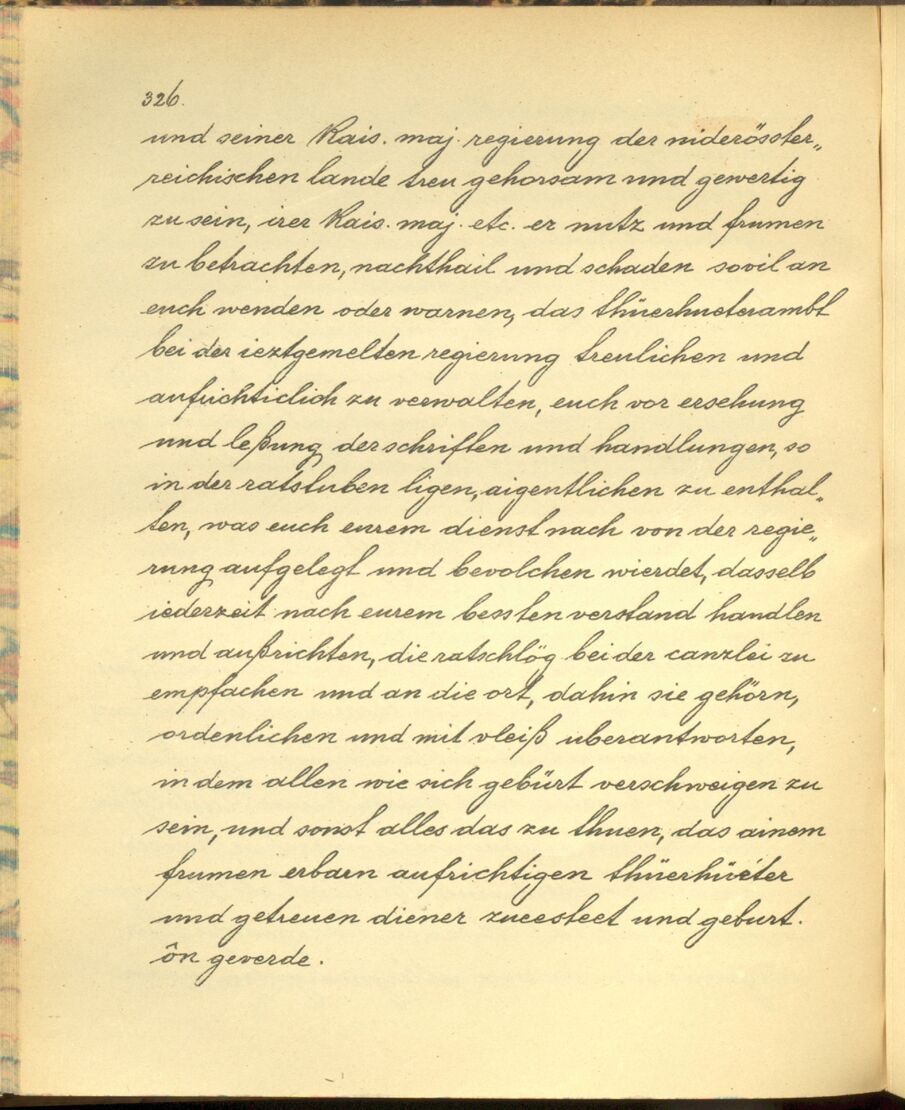 326.
und seiner Kais. maj. regierung der niderösster„
reichischen lande treu gehorsam und gewertig
zu sein, irer Kais. maj. etc. er nutz und frumen
zu betrachten, nachthail und schaden sovil an
euch wenden oder warnen, das thüerhueterambt
bei der ieztgemelten regierung treulichen und
aufrichticlich zu verwalten, euch vor ersehung
und leßung der schriften und handlungen, so
in der ratstuben ligen, aigentlichen zu enthal„
ten, was euch eurem dienst nach von der regie„
rung aufgelegt und bevolchen wierdet, dasselb
iederzeit nach eurem bessten verstand handlen
und außrichten, die ratschlög bei der canzlei zu
empfachen und an die ort, dahin sie gehörn,
ordenlichen und mit vleiß uberantworten,
in dem allen wie sich gebürt verschweigen zu
sein, und sonst alles das zu thuen, das ainem
frumen erbarn aufrichtigen thüerhüeter
und getreuen diener zueesteet und geburt.
ôn geverde.